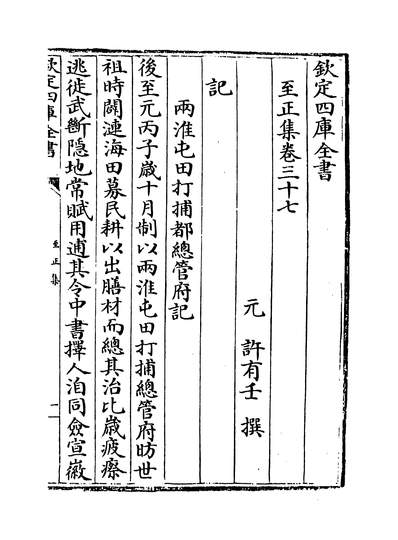 欽定四庫全書
至正集卷三十七
元 許有壬 撰
記
兩淮屯田打捕都總管府記
後至元丙子歲十月制以兩淮屯田打捕總管府昉世
祖時闢漣海田募民耕以出膳材而總其治比歲疲瘵
逃徙武斷隱地常賦用逋其令中書擇人洎同僉宣徽
欽定四庫全書
至正集